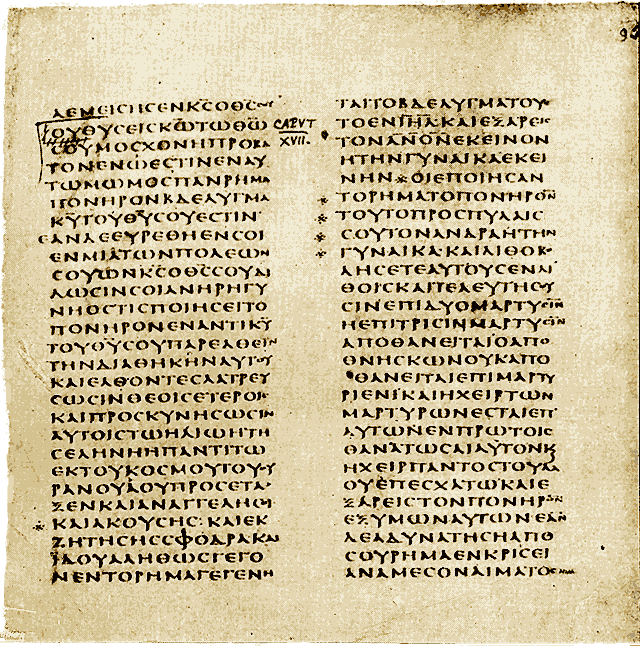 ΑΕΜΕΙCΗCΕΝΚCΟΘCCΟΥ
ΟΥΘΥCΕΙCΚΩΤΩΘΩ
CΟΥΜΟCΧΟΝΗΠΡΟΒΑ
ΤΟΝΕΝΩΕCΤΙΝΕΝΑΥ
ΤΩΜΩΜΟCΠΑΝΡΗΜΑ
ΠΟΝΗΡΟΝΒΔΕΛΥΓΜΑ
ΚΥΤΟΥΘΥCΟΥΕCΤΙΝ
ΕΑΝΔΕΕΥΡΕΘΗΕΝCΟΙ
ΕΝΜΙΑΤΩΝΠΟΛΕΩΝ
CΟΥΩΝΚCΟΘCCΟΥΔΙ
ΔΩCΙΝCΟΙΑΝΗΡΗΓΥ
ΝΗΟCΤΙCΠΟΙΗCΕΙΤΟ
ΠΟΝΗΡΟΝΕΝΑΝΤΙΚΥ
ΤΟΥΘΥCΟΥΠΑΡΕΛΘΕΙΝ
ΤΗΝΔΙΑΘΗΚΗΝΑΥΤΟΥ
ΚΑΙΕΛΘΟΝΤΕCΛΑΤΡΕΥ
CΩCΙΝΘΕΟΙCΕΤΕΡΟΙC
ΚΑΙΠΡΟCΚΥΝΗCΩCΙΝ
ΑΥΤΟΙCΤΩΗΛΙΩΗΤΗ
CΕΛΗΝΗΗΠΑΝΤΙΤΩ
ΕΚΤΟΥΚΟCΜΟΥΤΟΥΟΥ
ΡΑΝΟΥΑΟΥΠΡΟCΕΤΑ
ΞΕΝΚΑΙΑΝΑΓΓΕΛΗCΟΙ
※ΚΑΙΑΚΟΥCΗC:ΚΑΙΕΚ
ΖΗΤΗCΗCCΦΟΔΡΑΚΑΙ
ΙΔΟΥΑΛΗΘΩCΓΕΓΟ
ΝΕΝΤΟΡΗΜΑΓΕΓΕΝΗ
CAPVT
XVII.
ΤΑΙΤΟΒΔΕΛΥΓΜΑΤΟΥ
ΤΟΕΝΙΗΛΚΑΙΕΞΑΡΕΙC
ΤΟΝΑΝΟΝΕΚΕΙΝΟΝ
ΗΤΗΝΓΥΝΑΙΚΑΕΚΕΙ
ΝΗΝ※ΟΙΕΠΟΙΗCΑΝ
※ΤΟΡΗΜΑΤΟΠΟΝΗΡΟΝ
※ΤΟΥΤΟΠΡΟCΠΥΛΑΙC
※CΟΥΤΟΝΑΝΔΡΑΗΤΗΝ
※ΓΥΝΑΙΚΑ·ΚΑΙΛΙΘΟΒΟ
ΛΗCΕΤΕΑΥΤΟΥCΕΝΛΙ
ΘΟΙCΚΑΙΤΕΛΕΥΤΗCΟΥ
CΙΝΕΠΙΔΥΟΜΑΡΤΥCΙΝ
ΗΕΠΙΤΡΙCΙΝΜΑΡΤΥCΙΝ
ΑΠΟΘΑΝΕΙΤΑΙΟΑΠΟ
ΘΝΗCΚΩΝΟΥΚΑΠΟ
ΘΑΝΕΙΤΑΙΕΠΙΜΑΡΤΥ
ΡΙΕΝΙΚΑΙΗΧΕΙΡΤΩΝ
ΜΑΡΤΥΡΩΝΕCΤΑΙΕΠ
ΑΥΤΩΝΕΝΠΡΩΤΟΙC
ΘΑΝΑΤΩCΑΙΑΥΤΟΝΚ
ΗΧΕΙΡΠΑΝΤΟCΤΟΥΛΑ
ΟΥΕΠΕCΧΑΤΩΚΑΙΕ
ΞΑΡΕΙCΤΟΝΠΟΝΗΡΟΝ
ΕΞΥΜΩΝΑΥΤΩΝΕΑΝ
ΔΕΑΔΥΝΑΤΗCΗΑΠΟ
CΟΥΡΗΜΑΕΝΚΡΙCΕΙ
ΑΝΑΜΕCΟΝΑΙΜΑΤΟC